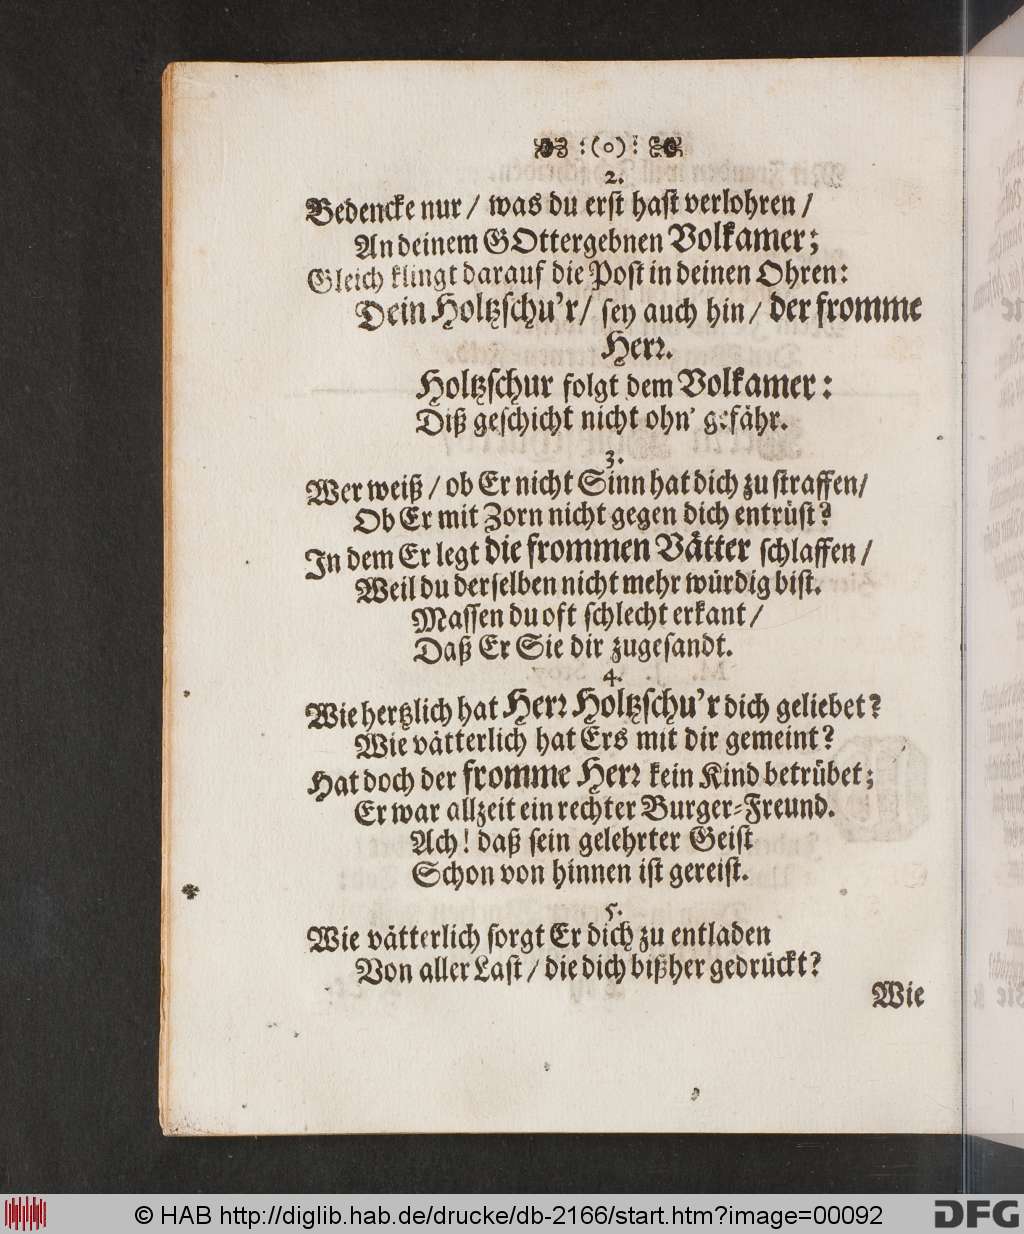 :(o):
2.
Bedencke nur / was du erst hast verlohren /
An deinem GOttergebnen Volkamer;
Gleich klingt darauf die Post in deinen Ohren:
Dein Holtzschu'r / sey auch hin / der fromme
Herr.
Holtzschur folgt dem Volkamer:
Diß geschicht nicht ohn' gefähr.
3.
Wer weiß / ob Er nicht Sinn hat dich zu straffen /
Ob Er mit Zorn nicht gegen dich entrüst?
In dem Er legt die frommen Vätter schlaffen /
Weil du derselben nicht mehr würdig bist.
Massen du oft schlecht erkant /
Daß Er Sie dir zugesandt.
4.
Wie hertzlich hat Herr Holtzschu'r dich geliebet?
Wie vätterlich hat Ers mit dir gemeint?
Hat doch der fromme Herr kein Kind betrübet;
Er war allzeit ein rechter Burger-Freund.
Ach! daß sein gelehrter Geist
Schon von hinnen ist gereist.
5.
Wie vätterlich sorgt Er dich zu entladen
Von aller Last / die dich bißher gedrückt?
Wie
© HAB http://diglib.hab.de/drucke/db-2166/start.htm?image=00092
DFG